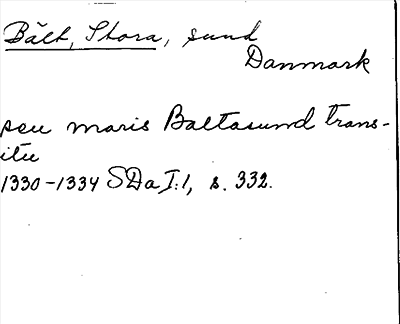 Bält, Stora, sund
Danmark
seu maris Baltasund trans-
itu
1330-1334 SDa I:1, s. 332.